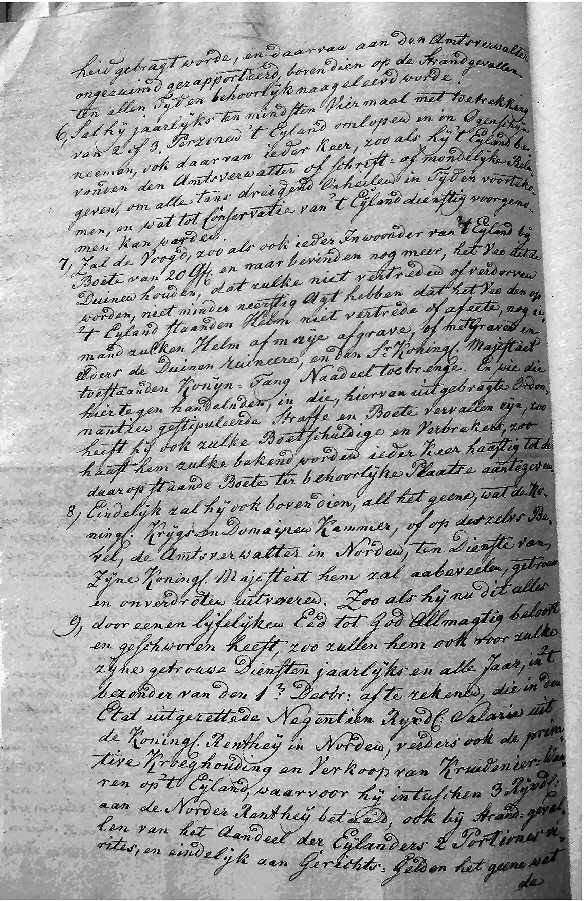 heid gebragt worde, en daarvan aan den Amtsverwalter
ongezuimd gerapporteerd, boven dien op de Strandgevallen
ten allen Tyden behoorlijk naageleevd worde.
6, Sal hij jaarlijks ten mindsten Viermaal met toetrekking
van 2 of 3, Perzonen 't Eyland omlopen en in Ogenschijn
neemen, ook daarvan ieder Keer, zoo als hij 't Eyland be
vonden den Amtsverwalter of schrift- of mondelijke Be
geven, om alle tans dreigend Onheilen in Tyden voorteko
men, en wat tot Conservatie van 't Eyland dienstig voorgeno
men kan worden.
7, Zal de Voogd, zoo als ook ieder Inwoonder van 't Eyland bij
Boete van 20 Gfl. en naar bevinden nog meer, het Vee uit de
Duinen houden, dat zulke niet vertreden of verdorven
worden, niet minder neerstig Agt hebben dat het Vee den op
't Eyland staanden Helm niet vertrede of afeete, nog ie
mand zulken Helm afmaije afgrave, of met graven en
de Duinen ruineere, en dan Sr. Koningl. Majesteit
toestaanden Konijn-Fang Naadeel toebrenge. En wie die
hiertegen handelnden, in die, hiervan uitgebragte Ordon
nantien gestipuleerde Straffe en Boete vervallen zijn, zoo
heeft hij ook zulke Boetschuldige en Verbrekers, zoo
haast hem zulke bekend worden ieder Keer haastig tot de
daarop staande Boete ter behoorlijke Plaatse aantegeven
8, Eindelijk zal hij ook bovendien, all het geene, wat de Ko
ningl. Krygs en Domainen Kammer, of op deszelvs Be
vel, de Amtsverwalter in Norden, ten Dienste van
Zijne Koningl. Majesteit hem zal aabeveelen, getrouw
en onverdroten uitvoeren. Zoo als hij nu dit alles
9, door eenen lyfelyken Eed tot God Allmagtig beloovt
en geschworen heeft, zoo zullen hem ook voor zulke
zijne getrouwe Diensten jaarlijks en alle Jaar, in't
bezonder van den 1n. Decbr: af te rekenen, die in den
Etat uitgezettede Negentien Ryxdl: Salarie uit
de Koningl. Renthey in Norden, verders ook de priva
tive Kroeghouding en Verkoop van Kruideniers Wa
ren op't Eyland, waarvoor hij intuschen 3 Ryxdl:
aan de Norder Renthey betaald, ook bij Strand-geval
len van het Aandeel der Eylanders 2 Portiones vi
rites, en eindelijk aan Gerichts-Gelden het geene wat
de